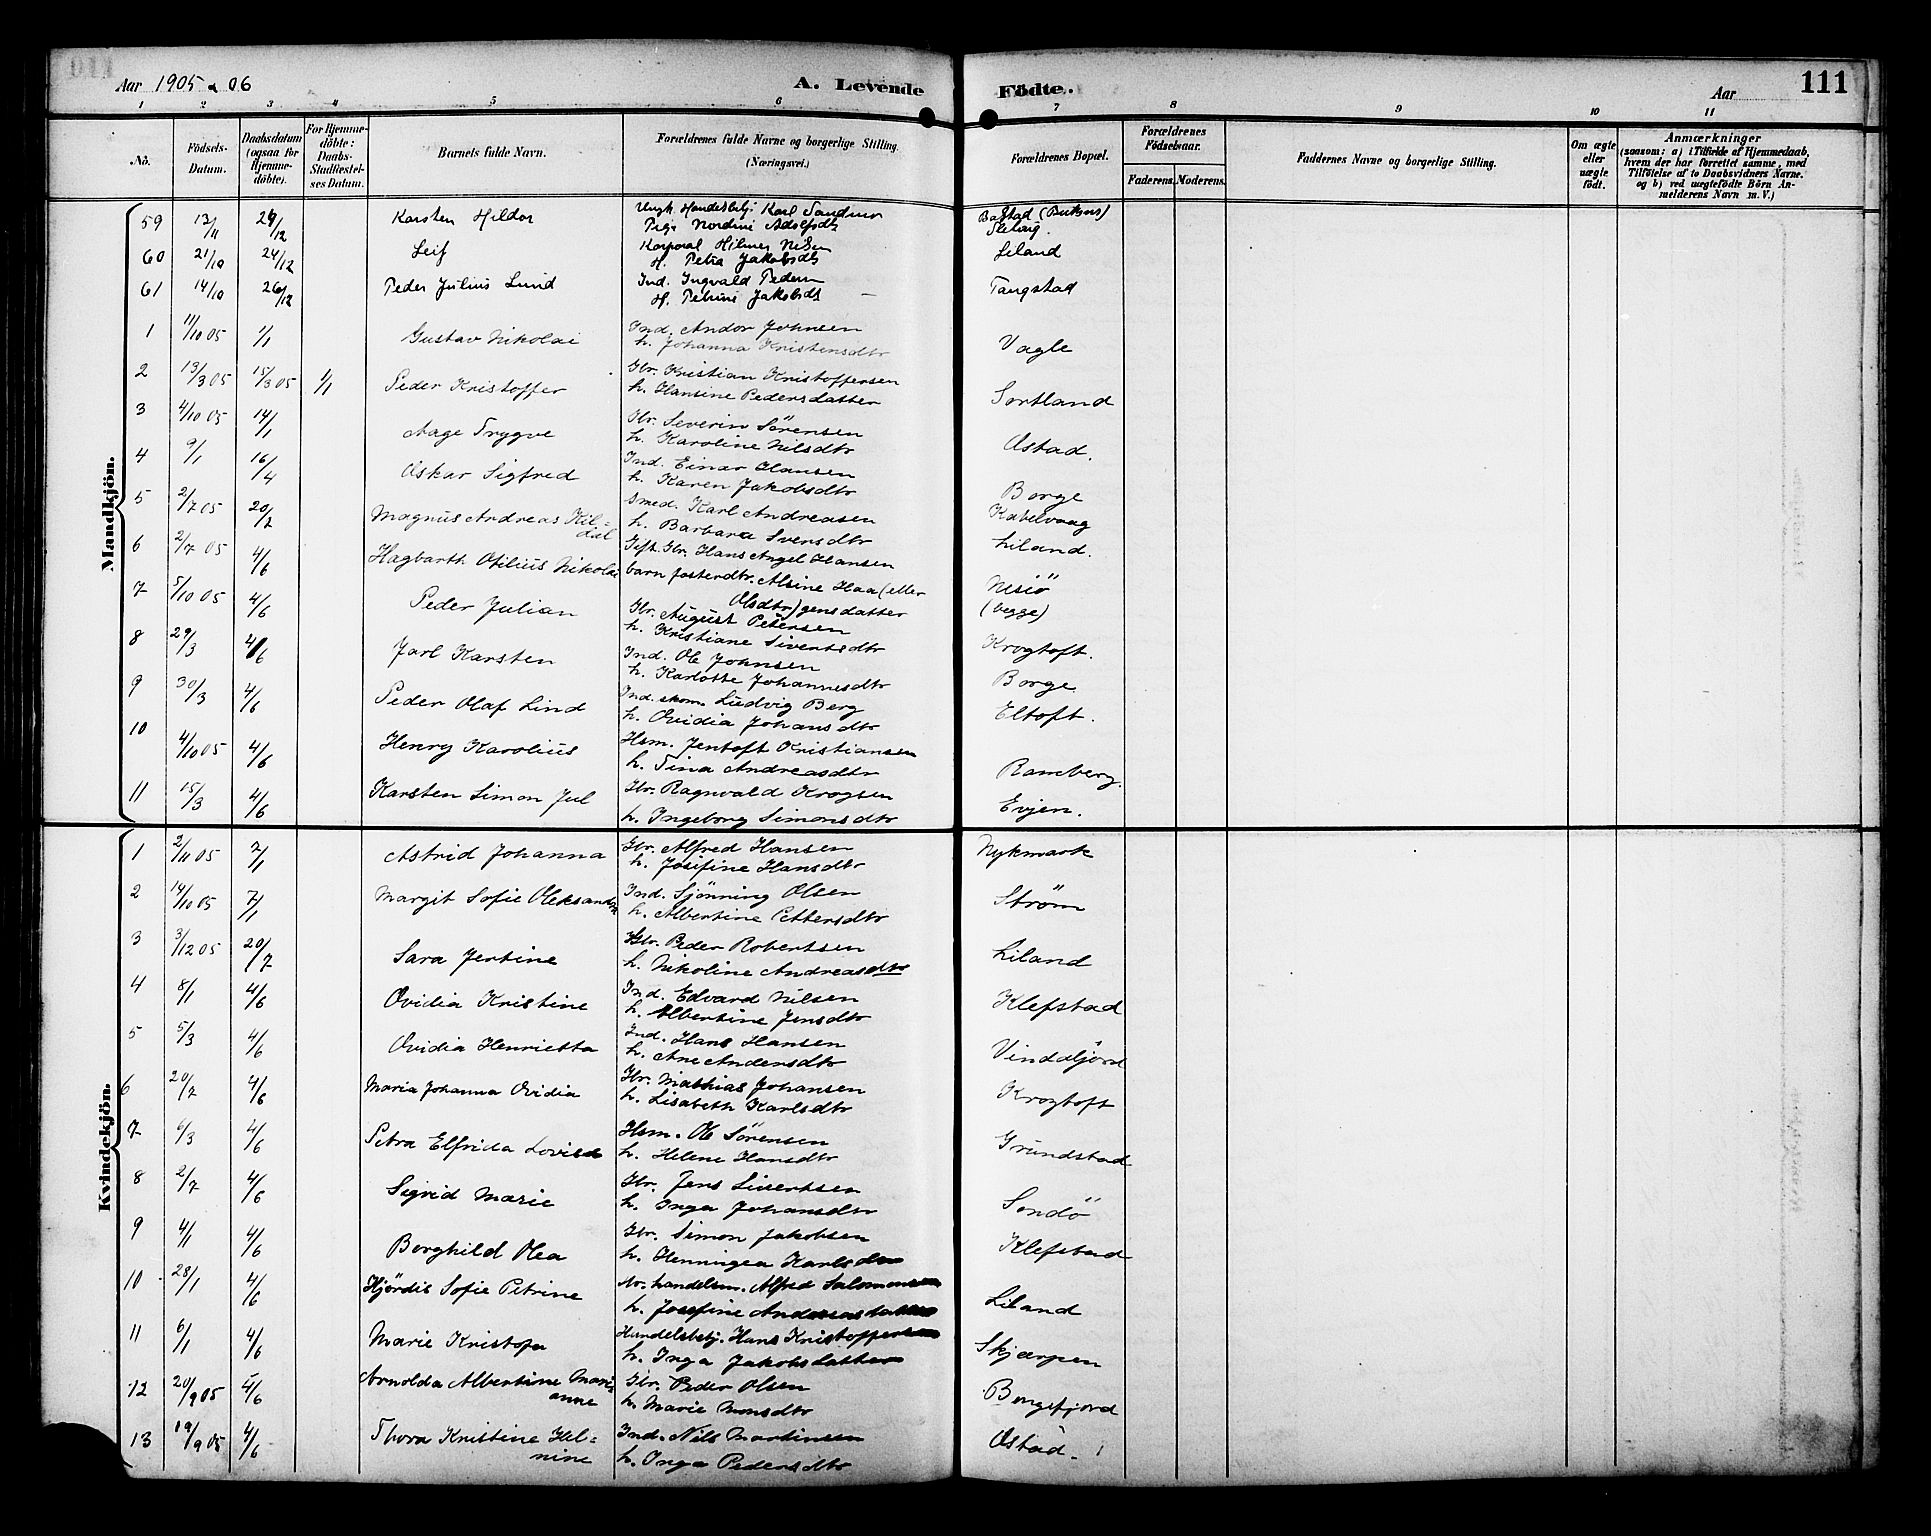 Aar 1905 & 06
A. Levende Födte.
Aar
111
1 2 3 4 5 6 7 8 9 10 11
No.
Födsels-Datum.
Daabsdatum (ogsaa for Hjemmedöbte).
For Hjemmedöbte: Daabs-Stadfæstelses Datum.
Barnets fulde Navn.
Forældrenes fulde Navne og borgerlige Stilling. (Næringsvei.)
Forældrenes Bopæl.
Forældrenes Födselsaar.
Faderens. Moderens.
Faddernes Navne og borgerlige Stilling.
Om ægte eller uægte födt.
Anmærkninger
(saasom: a) i Tilfælde af Hjemmedaab, hvem der har forrettet samme, med Tilföielse af to Daabsvidners Navne. og b) ved uægtefödte Börn Anmelderens Navn m. V.)
Mandkjön.
59 13/11 24/12 Karsten Hildor Ungk. Handelsbetj. Karl Sandmo
Pige Nordine Adolfsdtr
60 21/10 24/12 Leif Korporal Hilmer Nilsen Liland
H. Petra Jakobsdtr
61 14/10 26/12 Peder Julius Lund Ind. Ingvald Pedersen Tangstad
H. Petrine Jakobsdtr
1 11/10 05 1/1 Gustav Nikolai Ind. Andor Johnsen
h. Johanna Kristensdtr Vagle
2 13/3 05 15/3 05 1/1 Peder Kristoffer Gbr. Kristian Kristoffersen
h. Hansine Pedersdatter Sortland
3 4/10 05 14/1 Aage Trygve Gbr. Severin Sörensen
h. Karoline Nilsdtr Ostad.
4 9/1 16/4 Oskar Sigfred Ind. Einar Hansen
h. Karen Jakobsdtr Borge
5 2/7 05 20/2 Magnus Andreas Kildal Smed. Karl Andreasen Kabelvaag
h. Barbara Svensdtr
6 2/7 05 4/6 Hagbarth Otilius Nikolai Gift. Gbr. Hans Angel Hansen Liland.
barn fosterdtr. Alsine Haa(eller Olsdtr)gensdatter Nesjö (begge)
7 5/10 05 4/6 Peder Julian Gbr. August Petersen
h. Kristiane Sivertsdtr Krogtoft.
8 29/3 4/6 Jarl Karsten Ind. Ole Johnsen
h. Karlotte Johannesdtr Borge
9 30/3 4/6 Peder Olaf Lind Ind. skom. Ludvig Berg Eltoft.
h. Ovidia Johansdtr
10 4/10 05 4/6 Henry Karolius Hsm. Jentoft Kristiansen
h. Tina Andreasdtr Ramberg
11 15/3 4/6 Karsten Simon Jul Gbr. Ragnvald Krogsen Evjen.
h. Ingeborg Simonsdtr
Kvindekjön.
1 2/11 05 7/1 Astrid Johanna Gbr. Alfred Hansen Nykmark
h. Josifine Hansdtr
2 14/10 05 7/1 Margit Sofie Oleksandra Ind. Sjönning Olsen Ström
h. Albertine Pettersdtr
3 3/12 05 20/7 Sara Jertine Gbr. Peder Robertsen
h. Nikoline Andreasdtr Liland
4 8/1 4/6 Ovidia Kristine Ind. Edvard Nilsen Klefstad
h. Albertine Jensdtr
5 5/3 4/6 Ovidia Henrietta Ind. Hans Hansen
h. Ane Andersdtr
6 20/7 4/6 Maria Johanna Ovidia Gbr. Mathias Johansen
h. Lisabeth Karlsdtr Krogtoft
7 6/3 4/6 Petra Elfrida Lovise Hsm. Ole Sörensen
h. Helene Hansdtr Grundstad
8 2/7 4/6 Sigrid Marie Gbr. Jens Sivertsen
h. Inga Johansdtr Sundö
9 4/1 4/6 Borghild Olea Gbr. Simon Jakobsen Klefstad
h. Henningea Karlsdtr
10 28/1 4/6 Hjördis Sofie Petrine handelsm. Alfred Salomonsen
h. Josefine Andersdatter Liland
11 6/1 4/6 Marie Kristofa Handelsbetj. Hans Kristoffersen
h. Inga Jakobsdatter Skjærpen
12 20/9 05 4/6 Arnolda Albertine Marianne Gbr. Peder Olsen
h. Marie Monsdtr Borgefjord
13 19/9 05 4/6 Thora Kristine Helnine Ind. Nils Martinsen Ostad.
h. Inga Pedersdtr